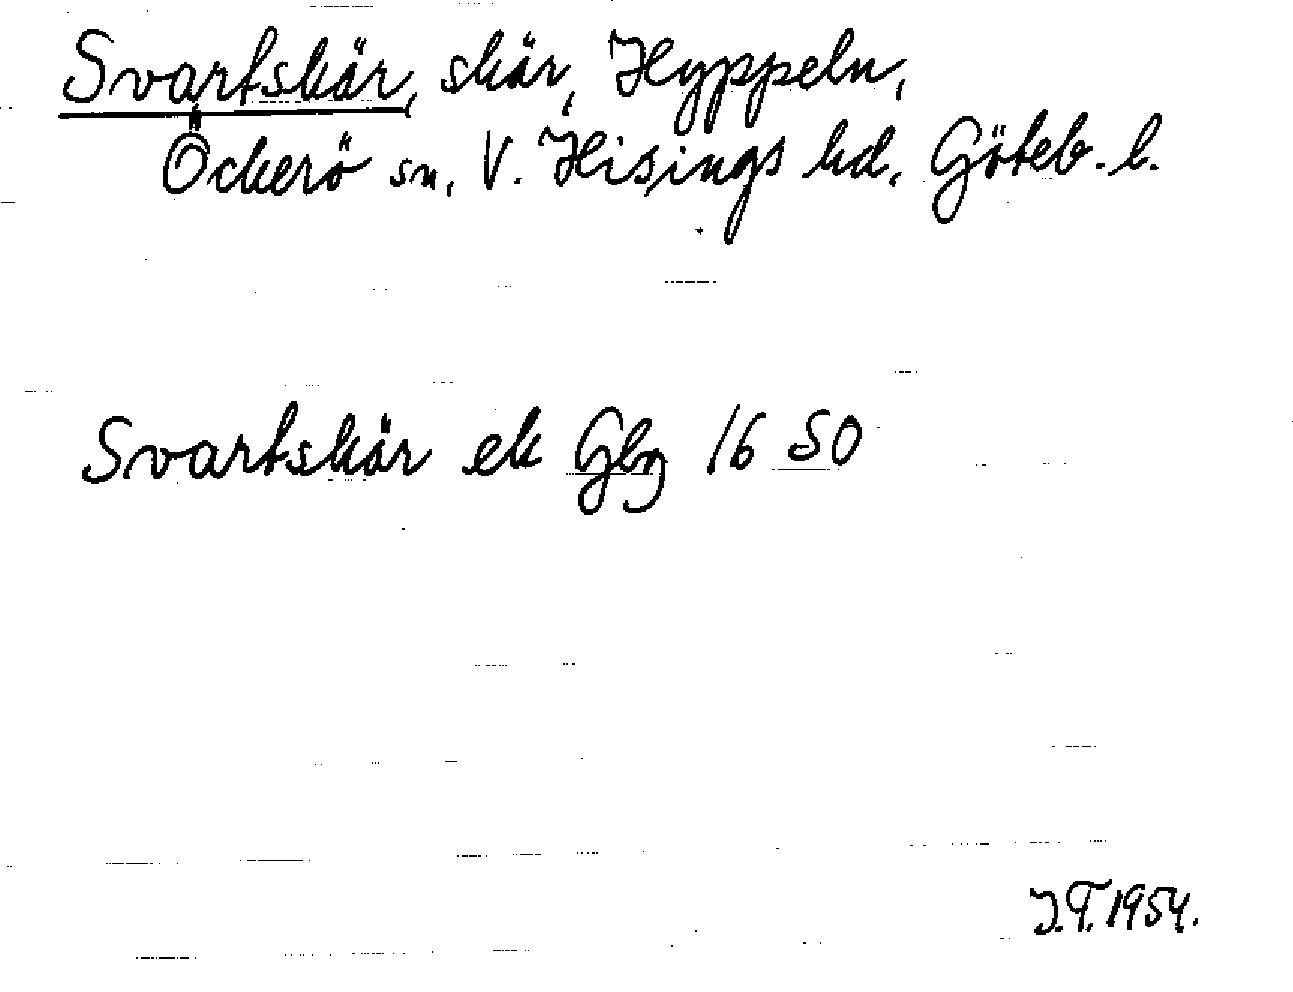 Svartskär, skär, Hyppeln,
Öckerö sn, V. Hisings hd, Göteb. l.
Svartskär ek Gbg 16 SO
J.T. 1954.